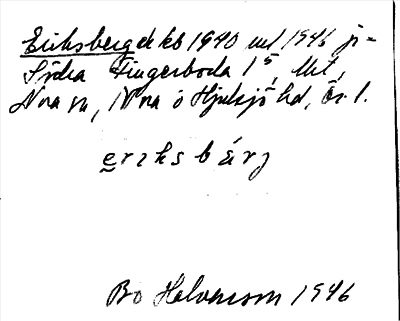 Eriksberg ek kb 1940 uel 1946 på
Södra Fingerboda 1⁵, Mtl,
Nora sn, Nora o Hjulsjö hd, Ör. l.
eriksbárj
Bo Halvarsson 1946